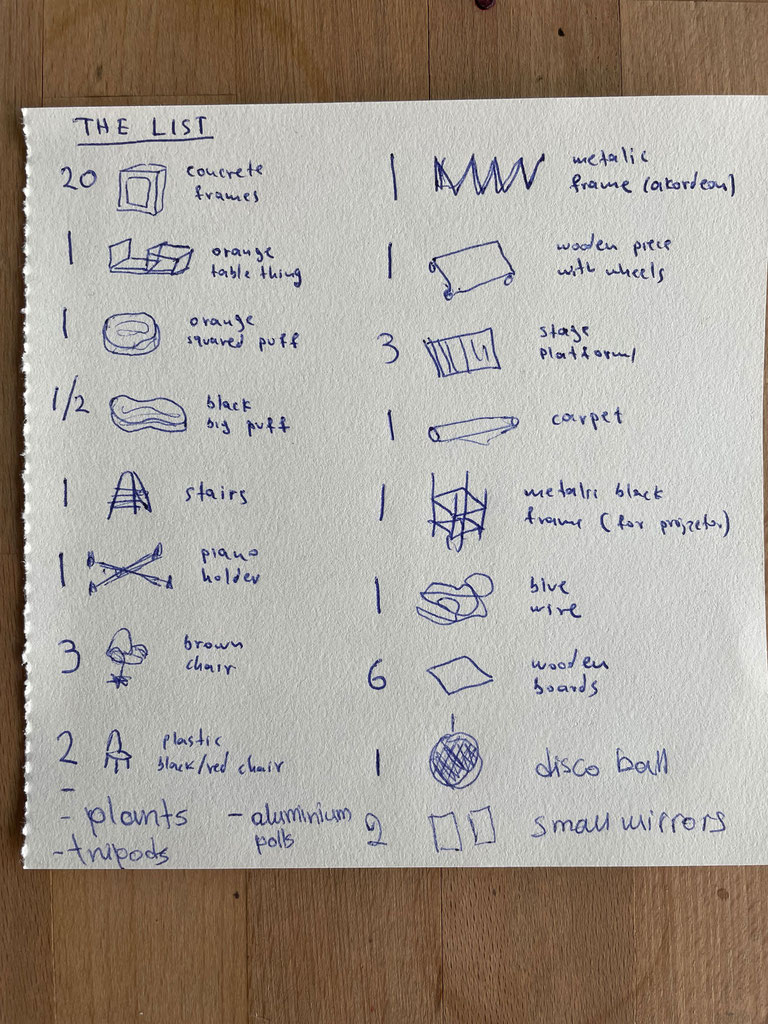 THE LIST
20 concrete
frames
1 orange
table thing
1 orange
squared puff
1/2 black
big puff
1 stairs
1 piano
holder
3 brown
chair
2 plastic
black/red chair
- plants
- tripods
- aluminium
polls
1 metalic
frame (akordeon)
1 wooden piece
with wheels
3 stage
platforms
1 carpet
1 metalic black
frame (for projzetor)
1 blue
wire
6 wooden
boards
1 disco ball
2 small mirrors